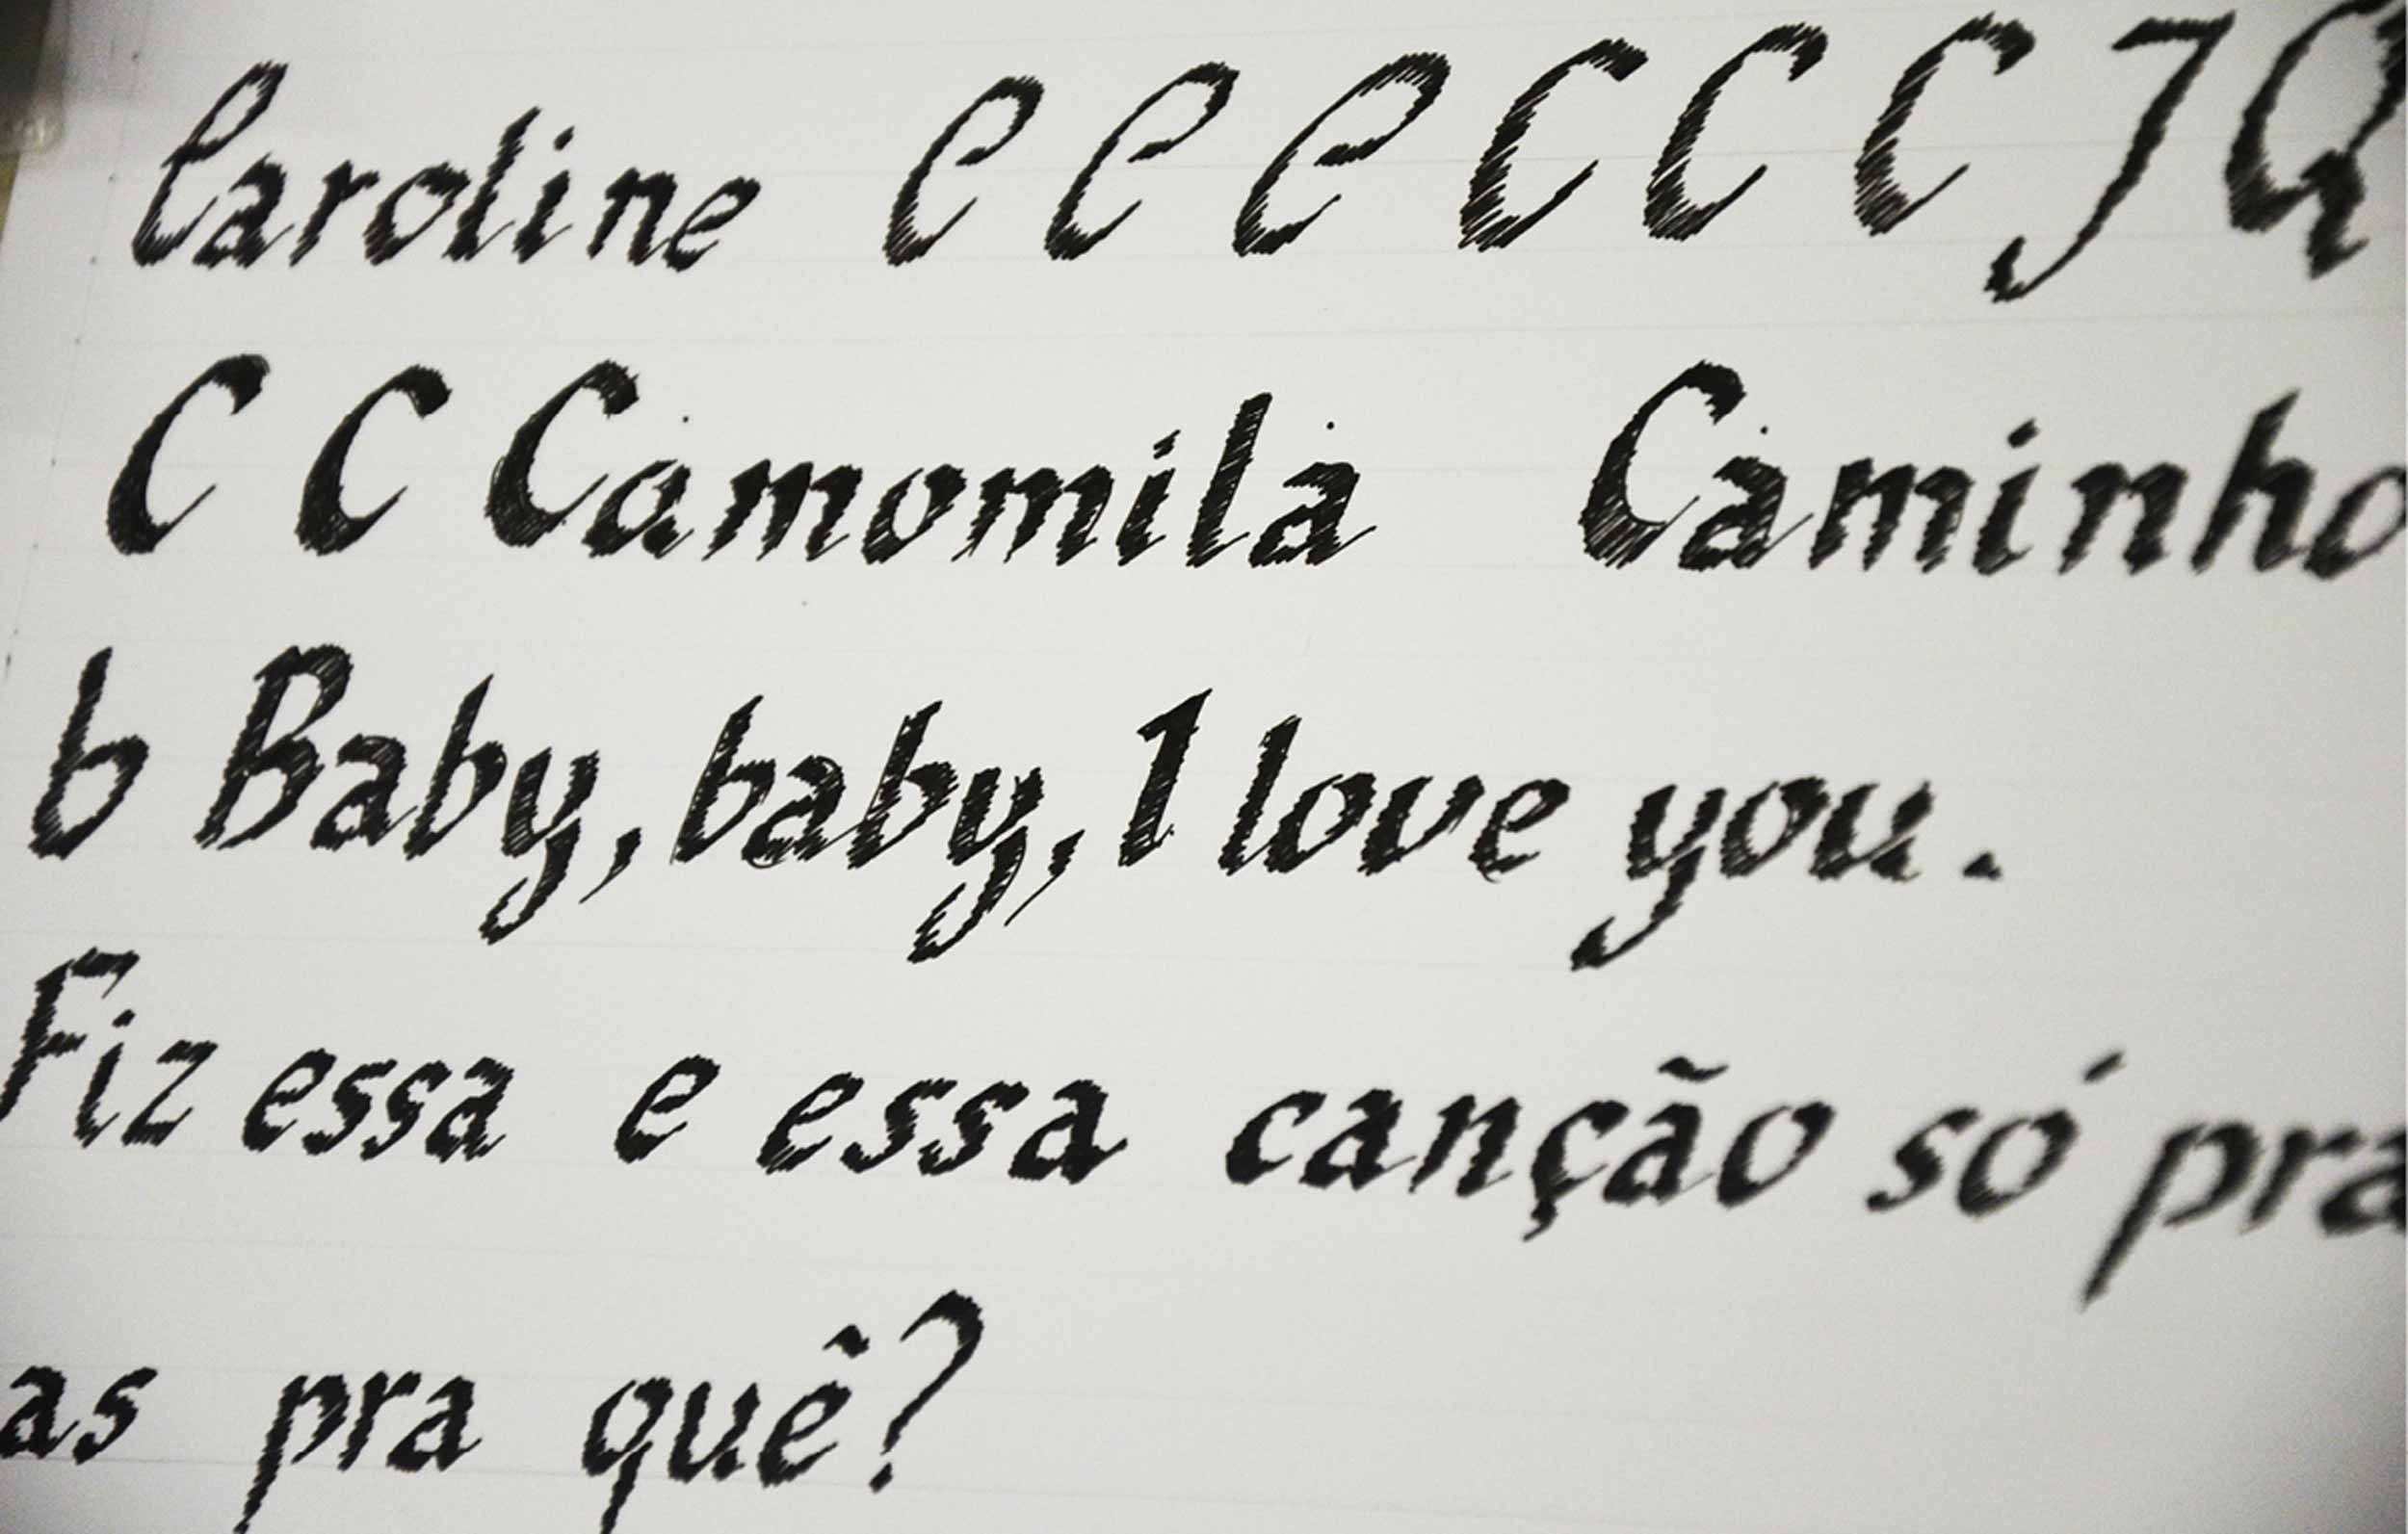 Caroline C C C C C C J Q
C C Camomila Caminho
b Baby, baby, I love you.
Fiz essa e essa canção só pra
as pra quê?